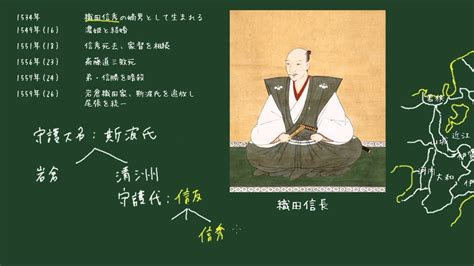 1534年 織田信秀の嫡男として生まれる
1549年(16) 濃姫と結婚
1551年(18) 信秀死去、家督を相続
1556年(23) 斎藤道三敗死
1559年(24) 弟・信勝を暗殺
1559年(26) 岩倉織田家、斯波氏を追放し
尾張を統一
守護大名:斯波氏
岩倉 清洲州
守護代:信友
信秀
織田信長
若狭
近江
山城
河内 大和